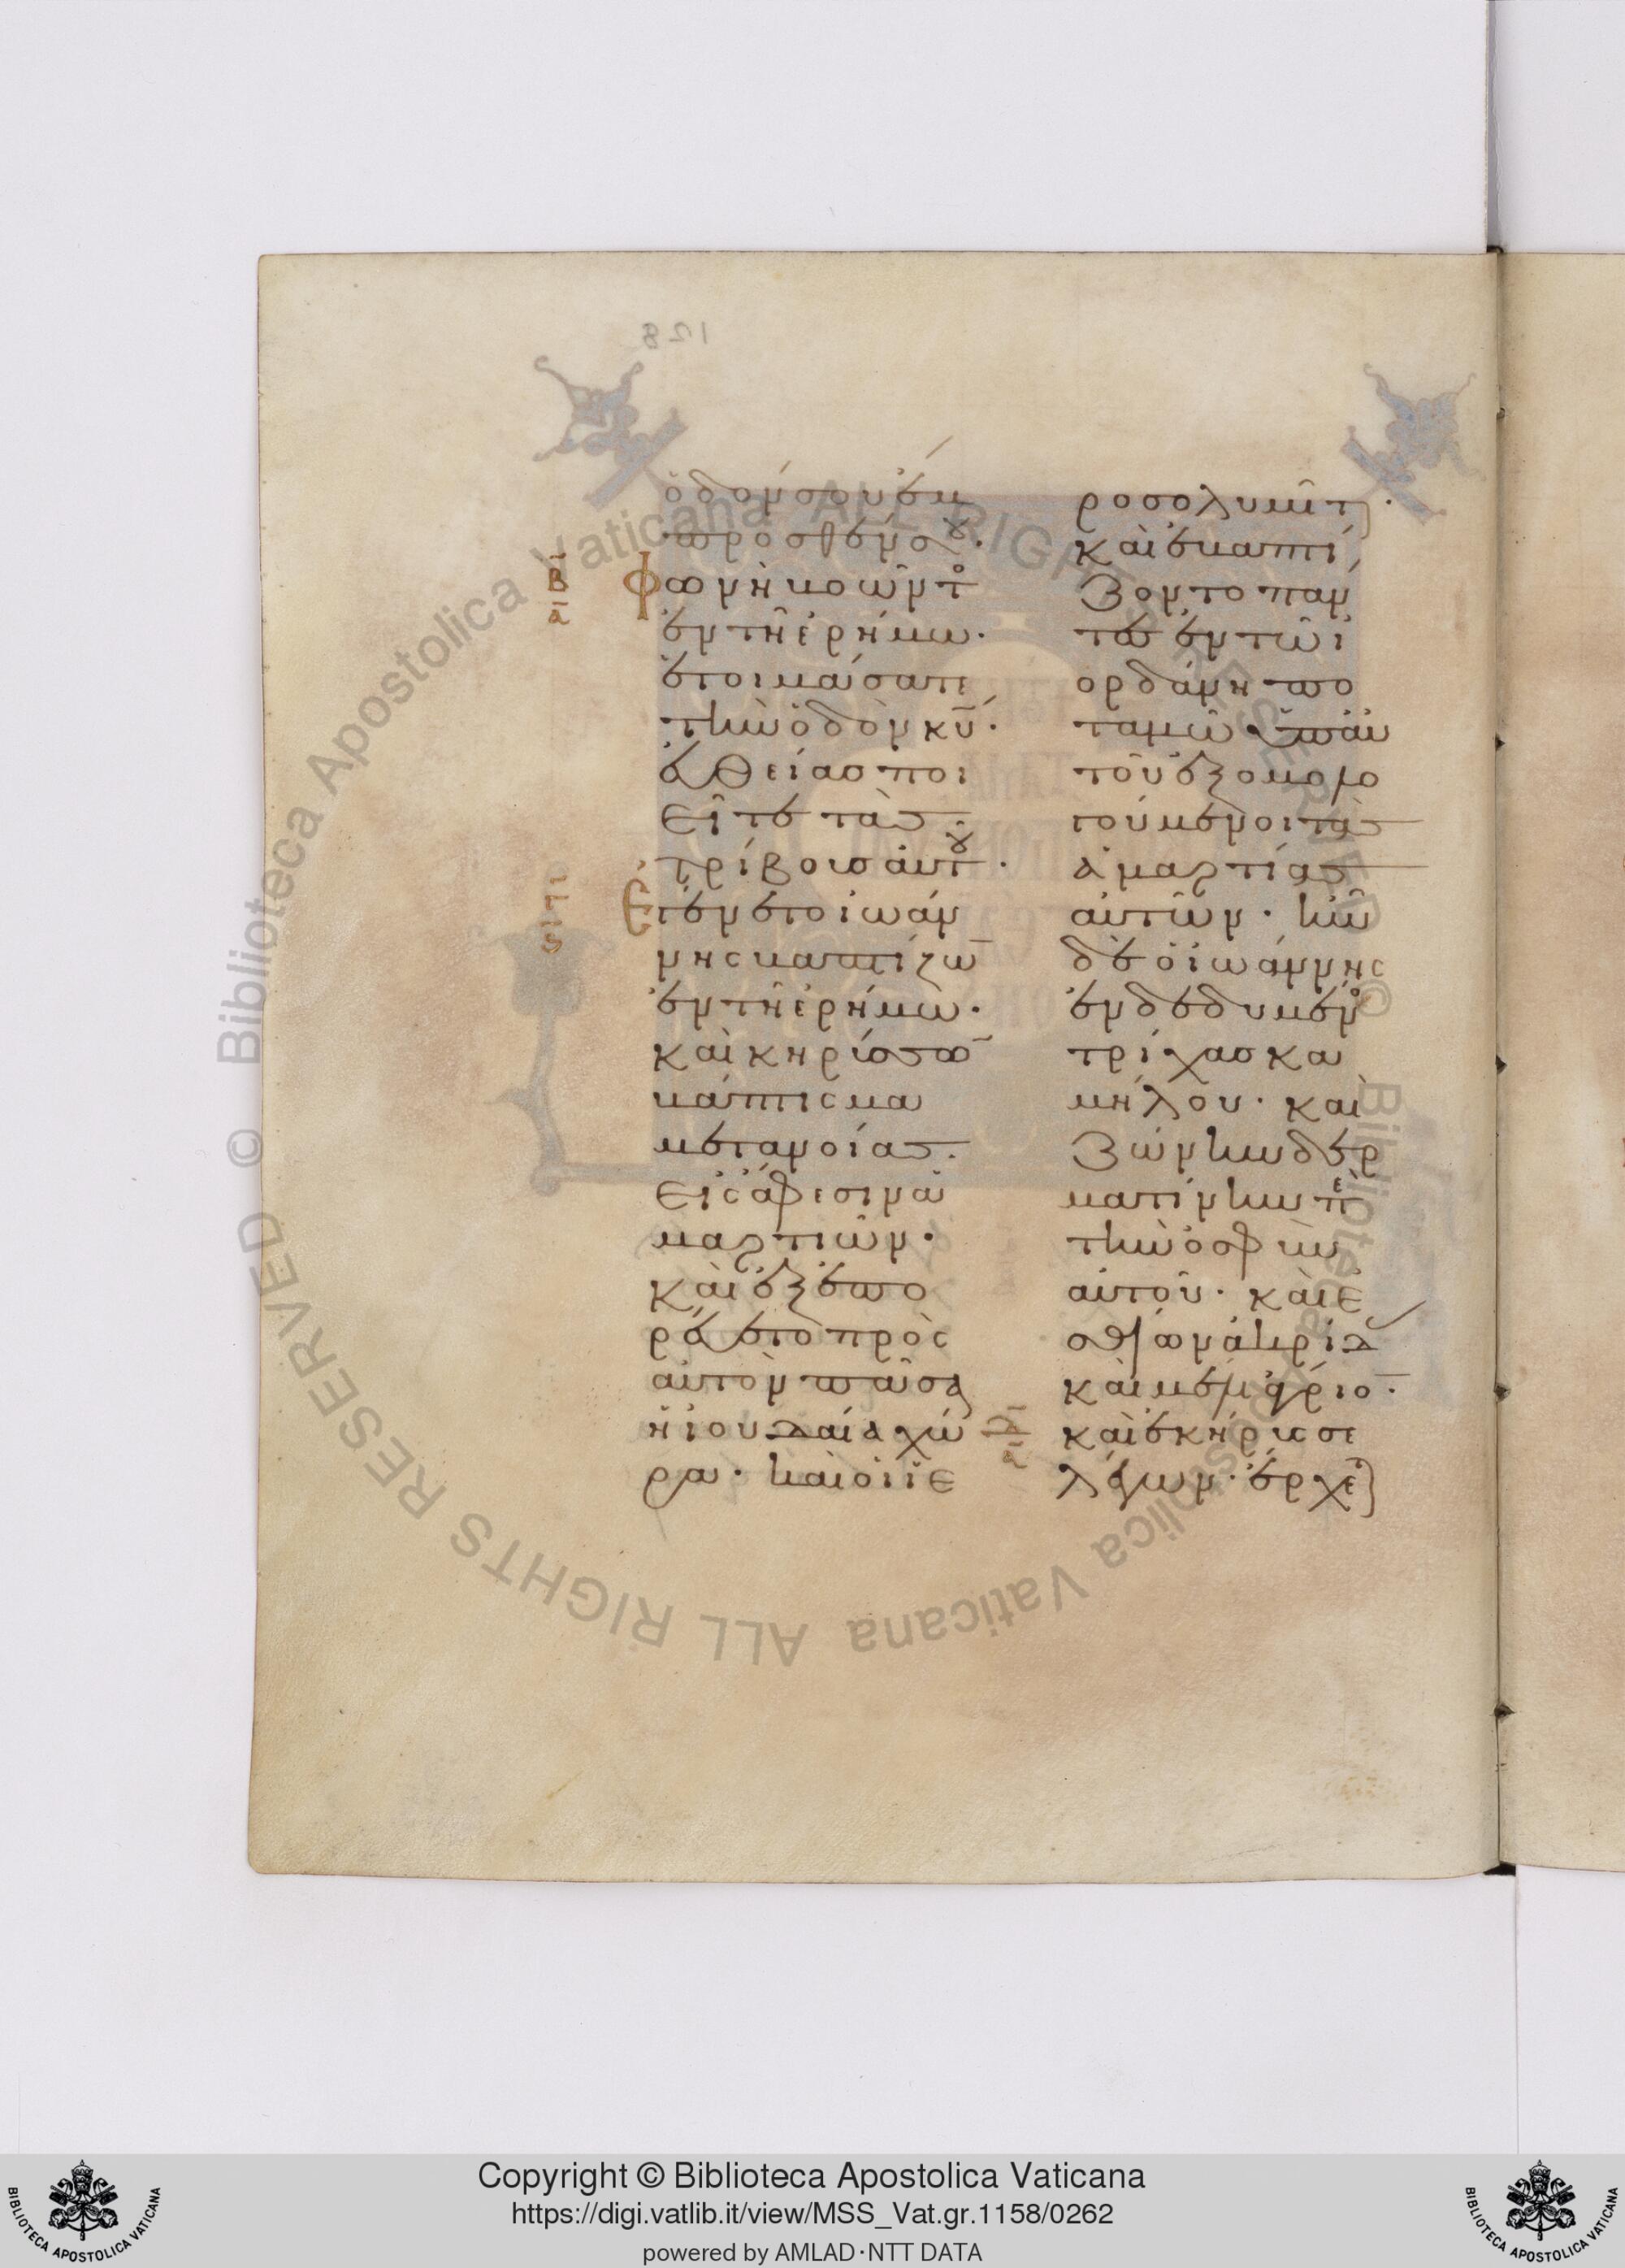 128
ὁδόν σου ἔμ
προσθέν σου·
Φωνὴ βοῶντο
ἐν τῆ ἐρήμω·
ἑτοιμάσατε
τὴν ὁδὸν κυ·
εὐθείας ποι
εῖτε τὰς
τρίβους αὐτου·
Ἐγένετο ἰωάν
νης βαπτίζω
ἐν τῆ ἐρήμω·
καὶ κηρύσσω
βάπτισμα
μετανοίας·
εἰς ἄφεσιν ἁ
μαρτιῶν·
καὶ ἐξεπο
ρεύετο πρὸς
αὐτὸν πᾶσα
ἡ ἰουδαία χώ
ρα· καὶ οἱ ἱε
ροσολυμῖται·
καὶ ἐβαπτί
ζοντο πάν
τες ἐν τῶ ἰ
ορδάνη πο
ταμῶ ὑπ αὐ
τοῦ ἐξομολο
γούμενοι τὰς
ἁμαρτίας
αὐτῶν· ἦν
δὲ ὁ ἰωάννης
ἐνδεδυμένο
τρίχας κα
μήλου· καὶ
ζώνην δερ
ματίνην περὶ
τὴν ὀσφὺν
αὐτοῦ· καὶ ἐ
σθίων ἀκρίδας
καὶ μέλι ἄγριο·
καὶ ἐκήρυσσε
λέγων· ἔρχεται
Copyright © Biblioteca Apostolica Vaticana
https://digi.vatlib.it/view/MSS_Vat.gr.1158/0262
powered by AMLAD·NTT DATA
BIBLIOTECA APOSTOLICA VATICANA
BIBLIOTECA APOSTOLICA VATICANA
© Biblioteca Apostolica Vaticana ALL RIGHTS RESERVED
© Biblioteca Apostolica Vaticana ALL RIGHTS RESERVED